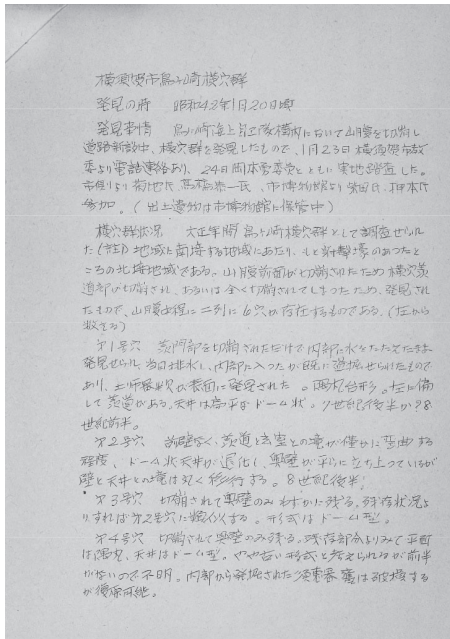 横須賀市鳥ヶ崎横穴群
発見の時 昭和42年1月20日頃
発見事情 鳥ヶ崎海上自衛隊構内において山腹を切崩し
道路新設中、横穴群を発見したもので、1月23日横須賀市教
委より電話連絡あり、24日岡本委員とともに実地踏査した。
市側より菊池氏、高橋恭一氏、市博物館より柴田氏、
参加。(出土遺物は市博物館に保管中)
横穴群状況 大正年間鳥ヶ崎横穴群として調査せられ
た(註)地域と南接する地域にあたり、もと射撃壕のあつたと
ころの北接地域である。山腹前面が切崩されたため横穴羨
道部が切崩され、あるいは全く切崩されてしまつたため、発見され
たもので、山腹に二列に6穴が存在するものである。(左から
数える)
第1号穴 羨門部を切崩されただけで内部に水をたたえたまま
発見せられ、当日排水し、内部に入つたが既に盗掘せられたもので
あり、土師器片が表面に発見された。台形。左に偏
して羨道がある。天井は扁平なドーム状。7世紀後半か8
世紀前半。
第2号穴 前壁なく、羨道と玄室との境が僅かに弯曲する
程度、ドーム状天井が退化し、奥壁が平らに立ち上つているが
壁と天井との境は丸く移行する。8世紀後半。
第3号穴 切崩されて奥壁のみわずかに残る。残存状況よ
りすれば第2号穴に類似する。形式はドーム型。
第4号穴 切崩されて奥壁のみ残る。残存部分よりみて平面
は隅丸、天井はドーム型。やや古い形式と考えられるが前半
がないので不明。内部から発掘された須恵器甕は破壊する
が復原可能。